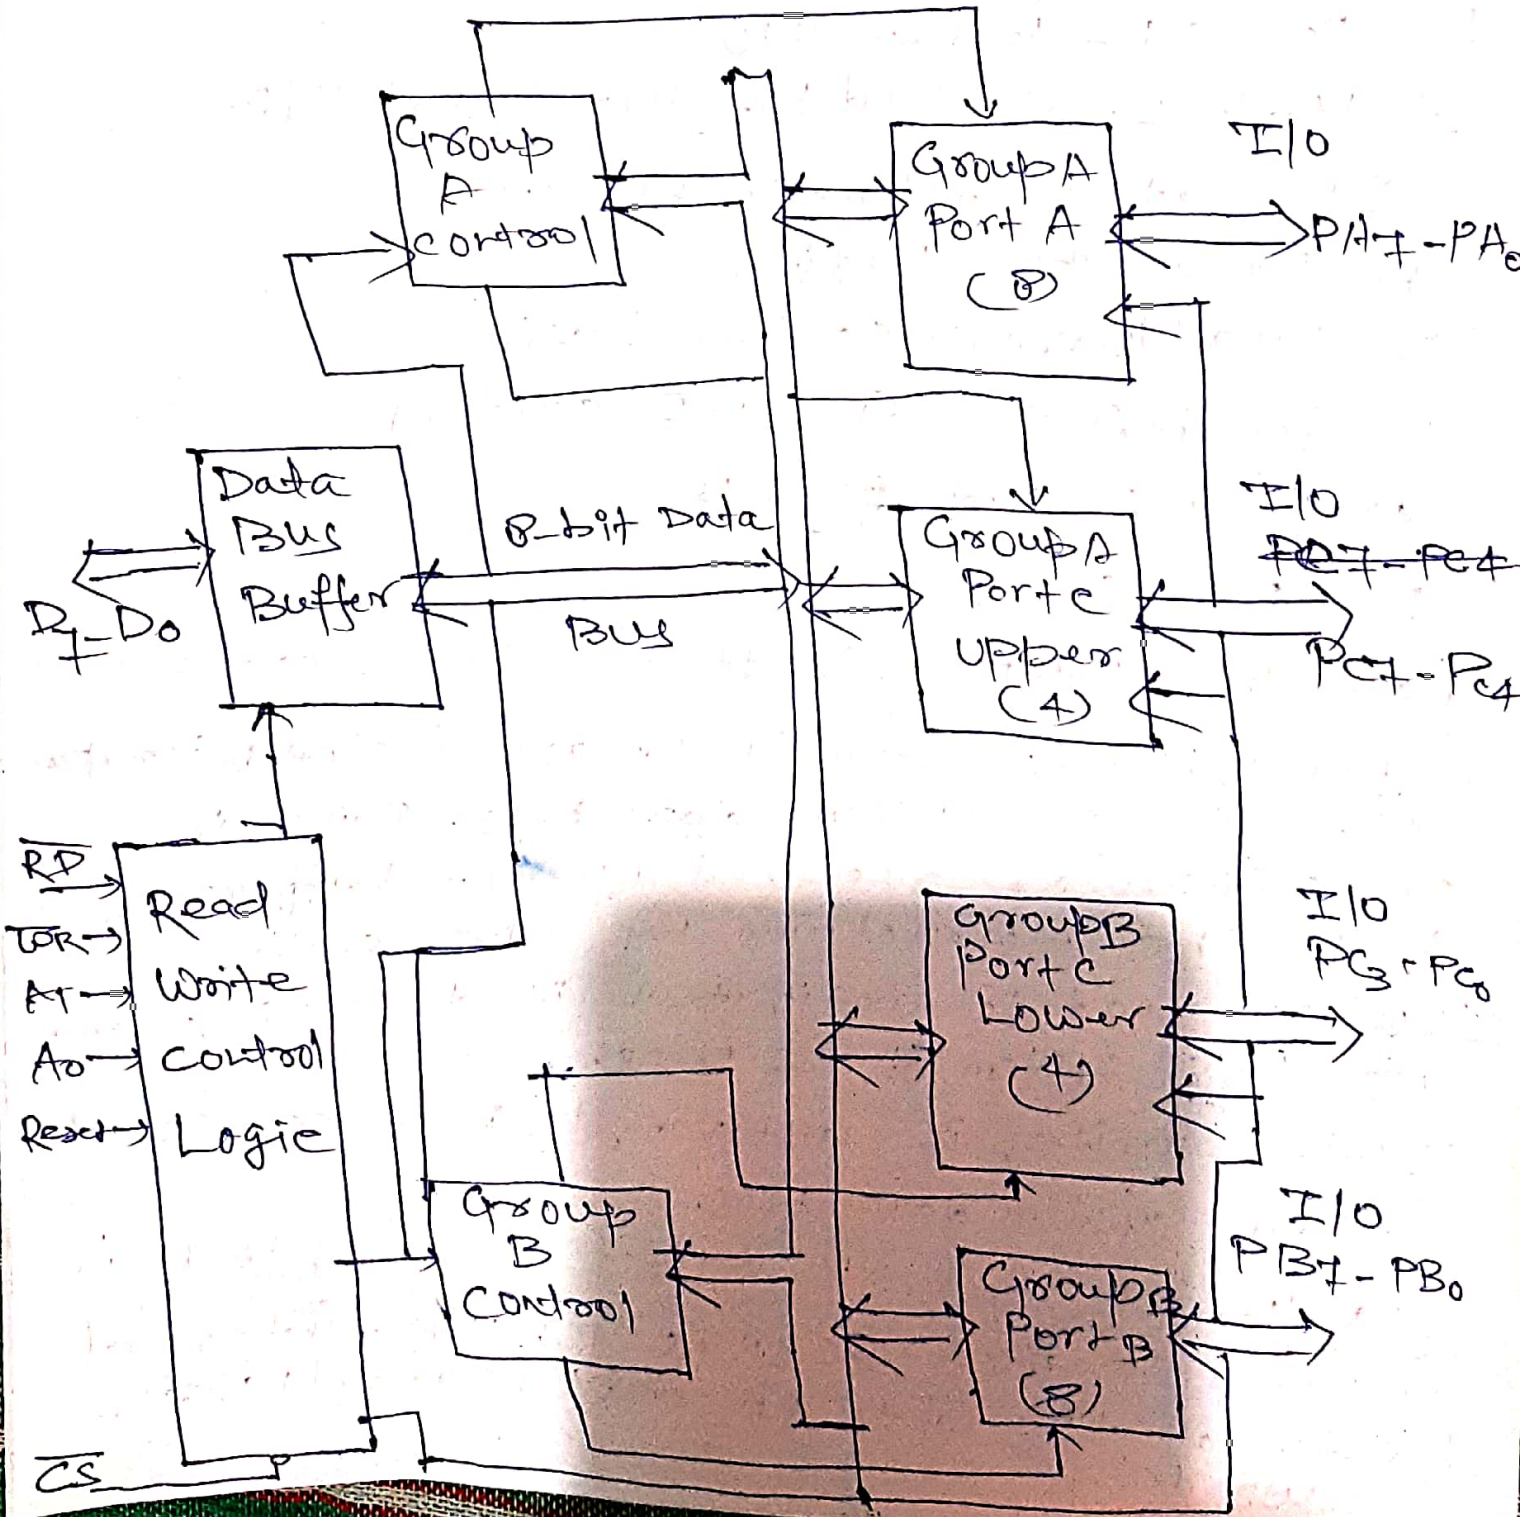 Group
A
Control
Group A
Port A
(8)
I/O
PA7-PA0
Data
Bus
Buffer
D7-D0
8-bit Data
Bus
Group A
Port C
Upper
(4)
I/O
PC7-PC4
PC7-PC4
RD
Read
Write
Control
Logic
A1
A0
Reset
CS
Group B
Port C
Lower
(4)
I/O
PC3-PC0
Group
B
Control
Group B
Port B
(8)
I/O
PB7-PB0